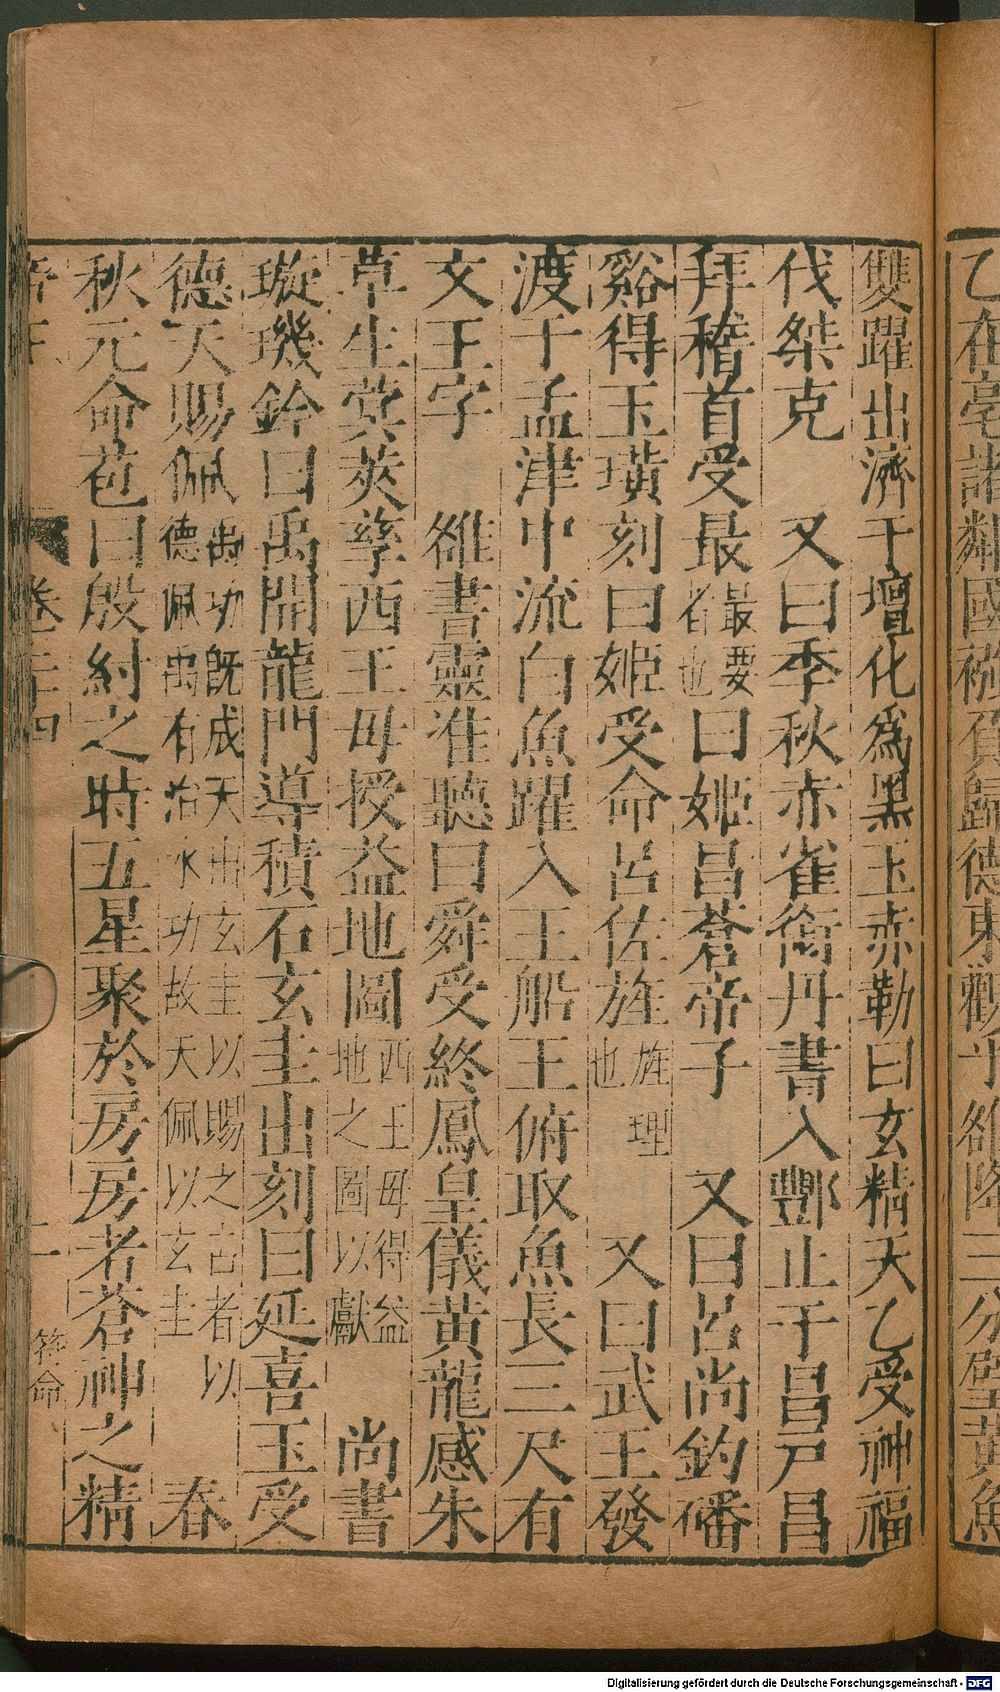 乙在亳諸鄰國襁負歸德東觀乎雒降三分璧黃魚
雙躍出濟于壇化爲黑玉赤勒曰玄精天乙受神福
伐桀克　又曰季秋赤雀銜丹書入酆止于昌戶昌
拜稽首受最最要者也曰姬昌蒼帝子　又曰呂尚釣磻
谿得玉璜刻曰姬受命呂佐旌旌理也　又曰武王發
渡于孟津中流白魚躍入王船王俯取魚長三尺有
文王字　雒書靈准聽曰舜受終鳳皇儀黃龍感朱
草生蓂莢孳西王母授益地圖西王母得益地之圖以獻　尚書
璇璣鈐曰禹開龍門導積石玄圭出刻曰延喜玉受
德天賜佩禹功既成天出玄圭以賜之古者以德佩禹有治水功故天佩以玄圭　春
秋元命苞曰殷紂之時五星聚於房房者蒼神之精
帝王　卷二十四　一　符命
Digitalisierung gefördert durch die Deutsche Forschungsgemeinschaft - DFG